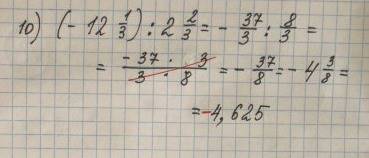 10) (- 12 1/3) : 2 2/3 = - 37/3 : 8/3 =
= (-37 · 3)/(3 · 8) = - 37/8 = - 4 3/8 =
= -4,625